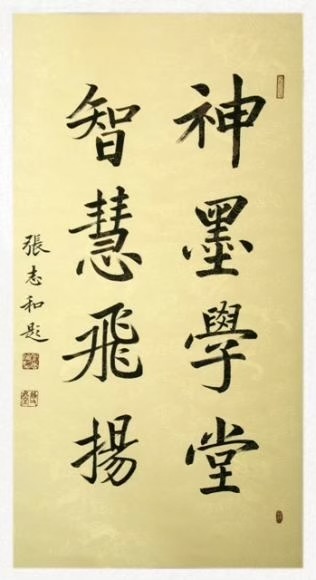 神墨學堂
智慧飛揚
張志和題